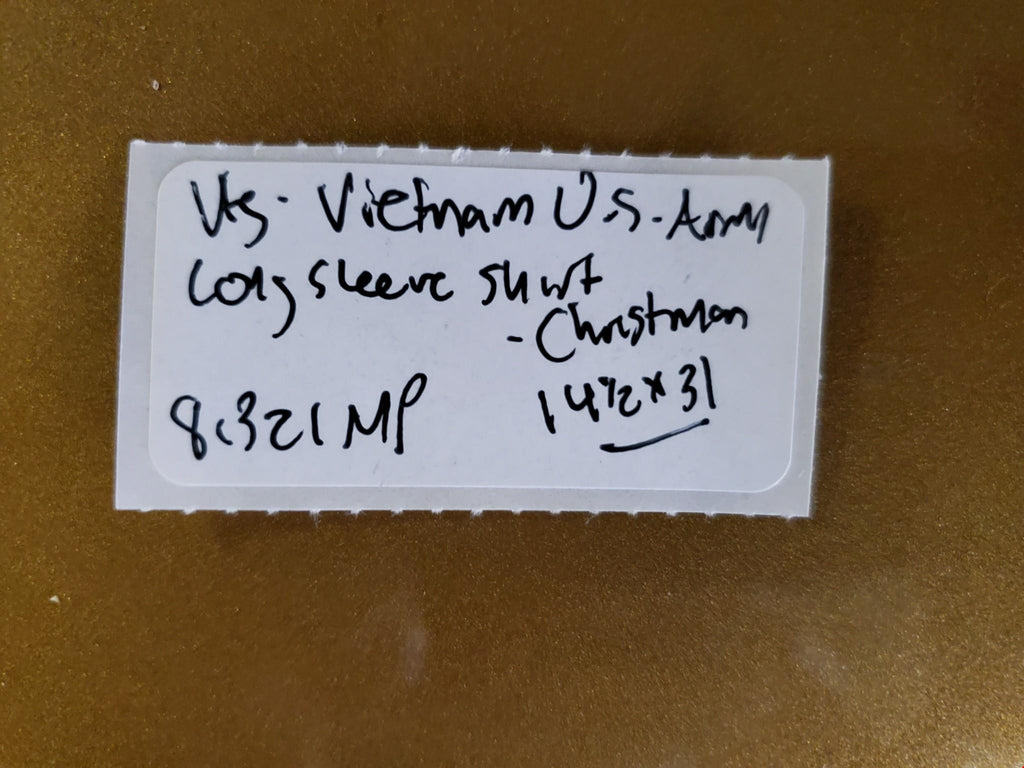 Vtg. Vietnam U.S. Army
Long sleeve shirt
- Christman
8.321 MP 14½ x 31